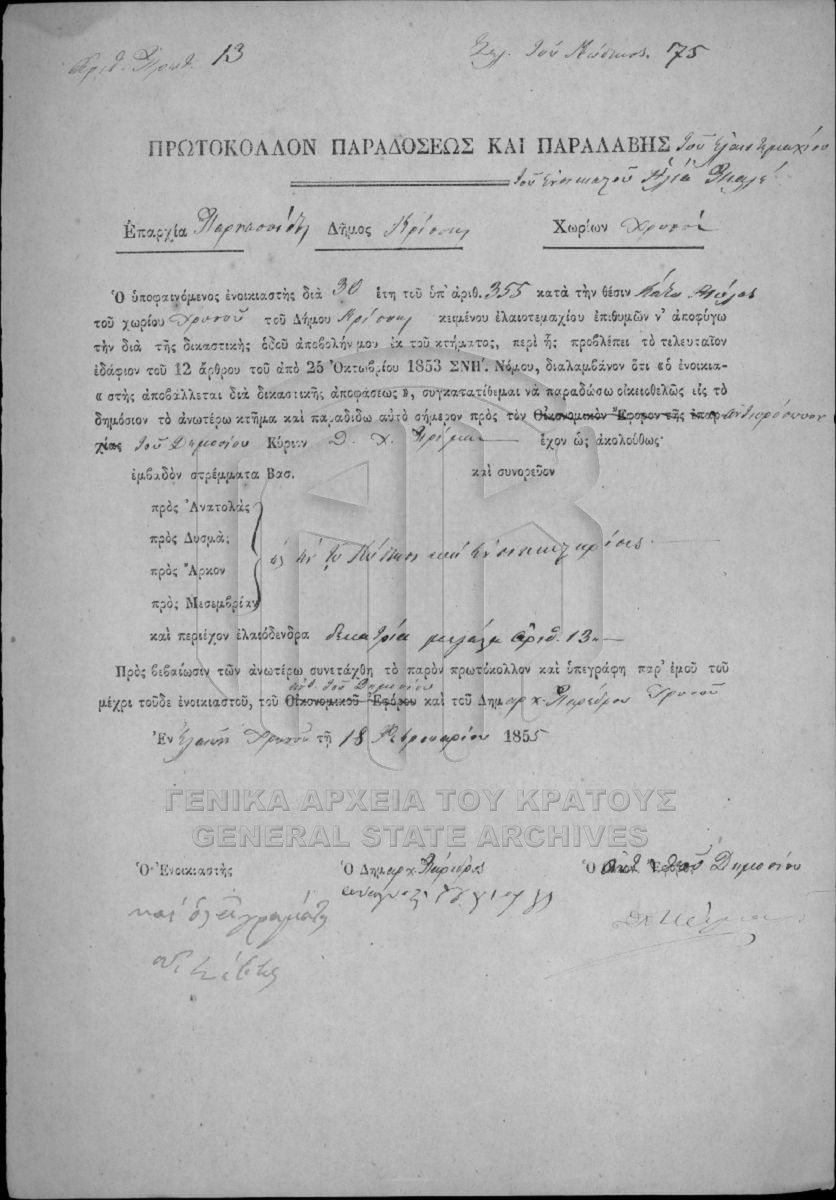 Ἀριθ. Πρωτ. 13
Σελ. τοῦ Κώδικος. 75
ΠΡΩΤΟΚΟΛΛΟΝ ΠΑΡΑΔΟΣΕΩΣ ΚΑΙ ΠΑΡΑΛΑΒΗΣ τοῦ Ἐλαιοτεμαχίου
τοῦ ἐνοικιαστοῦ Ἠλία
Ἐπαρχία Παρνασσίδος Δῆμος Κρίσσης Χωρίον Χρυσοῦ
Ὁ ὑποφαινόμενος ἐνοικιαστὴς διὰ 30 ἔτη τοῦ ὑπ' ἀριθ. 355 κατὰ τὴν θέσιν Κάτω
τοῦ χωρίου Χρυσοῦ τοῦ Δήμου Κρίσσης κειμένου ἐλαιοτεμαχίου ἐπιθυμῶν ν' ἀποφύγω
τὴν διὰ τῆς δικαστικῆς ὁδοῦ ἀποβολήν μου ἐκ τοῦ κτήματος, περὶ ἧς προβλέπει τὸ τελευταῖον
ἐδάφιον τοῦ 12 ἄρθρου τοῦ ἀπὸ 25 Ὀκτωβρίου 1853 ΣΝΗ'. Νόμου, διαλαμβάνον ὅτι «ὁ ἐνοικια-
« στὴς ἀποβάλλεται διὰ δικαστικῆς ἀποφάσεως», συγκατατίθεμαι νὰ παραδώσω οἰκειοθελῶς εἰς τὸ
δημόσιον τὸ ἀνωτέρω κτῆμα καὶ παραδίδω αὐτὸ σήμερον πρὸς τὸν Οἰκονομικὸν Ἔφορον τῆς ἐπαρ- ἀντιπρόσωπον
χίας τοῦ Δημοσίου Κύριον Δ. Χ. ἔχον ὡς ἀκολούθως·
ἐμβαδὸν στρέμματα Βασ. καὶ συνορεῦον
πρὸς Ἀνατολὰς
πρὸς Δυσμὰς
πρὸς Ἄρκτον
πρὸς Μεσεμβρίαν
ὡς ἐν τῷ Κώδικι καὶ
καὶ περιέχον ἐλαιόδενδρα δεκατρία μεγάλα ἀριθ. 13
Πρὸς βεβαίωσιν τῶν ἀνωτέρω συνετάχθη τὸ παρὸν πρωτόκολλον καὶ ὑπεγράφη παρ' ἐμοῦ τοῦ
ἀντ. τοῦ Δημοσίου
μέχρι τοῦδε ἐνοικιαστοῦ, τοῦ Οἰκονομικοῦ Ἐφόρου καὶ τοῦ Δημαρχ. Παρέδρου Χρυσοῦ
Ἐν Χρυσοῦ τῇ 18 Φεβρουαρίου 1855
ΓΕΝΙΚΑ ΑΡΧΕΙΑ ΤΟΥ ΚΡΑΤΟΥΣ
GENERAL STATE ARCHIVES
Ὁ Ἐνοικιαστὴς Ὁ Δημαρχ. Πάρεδρος Ὁ Ἀντ. τοῦ Δημοσίου